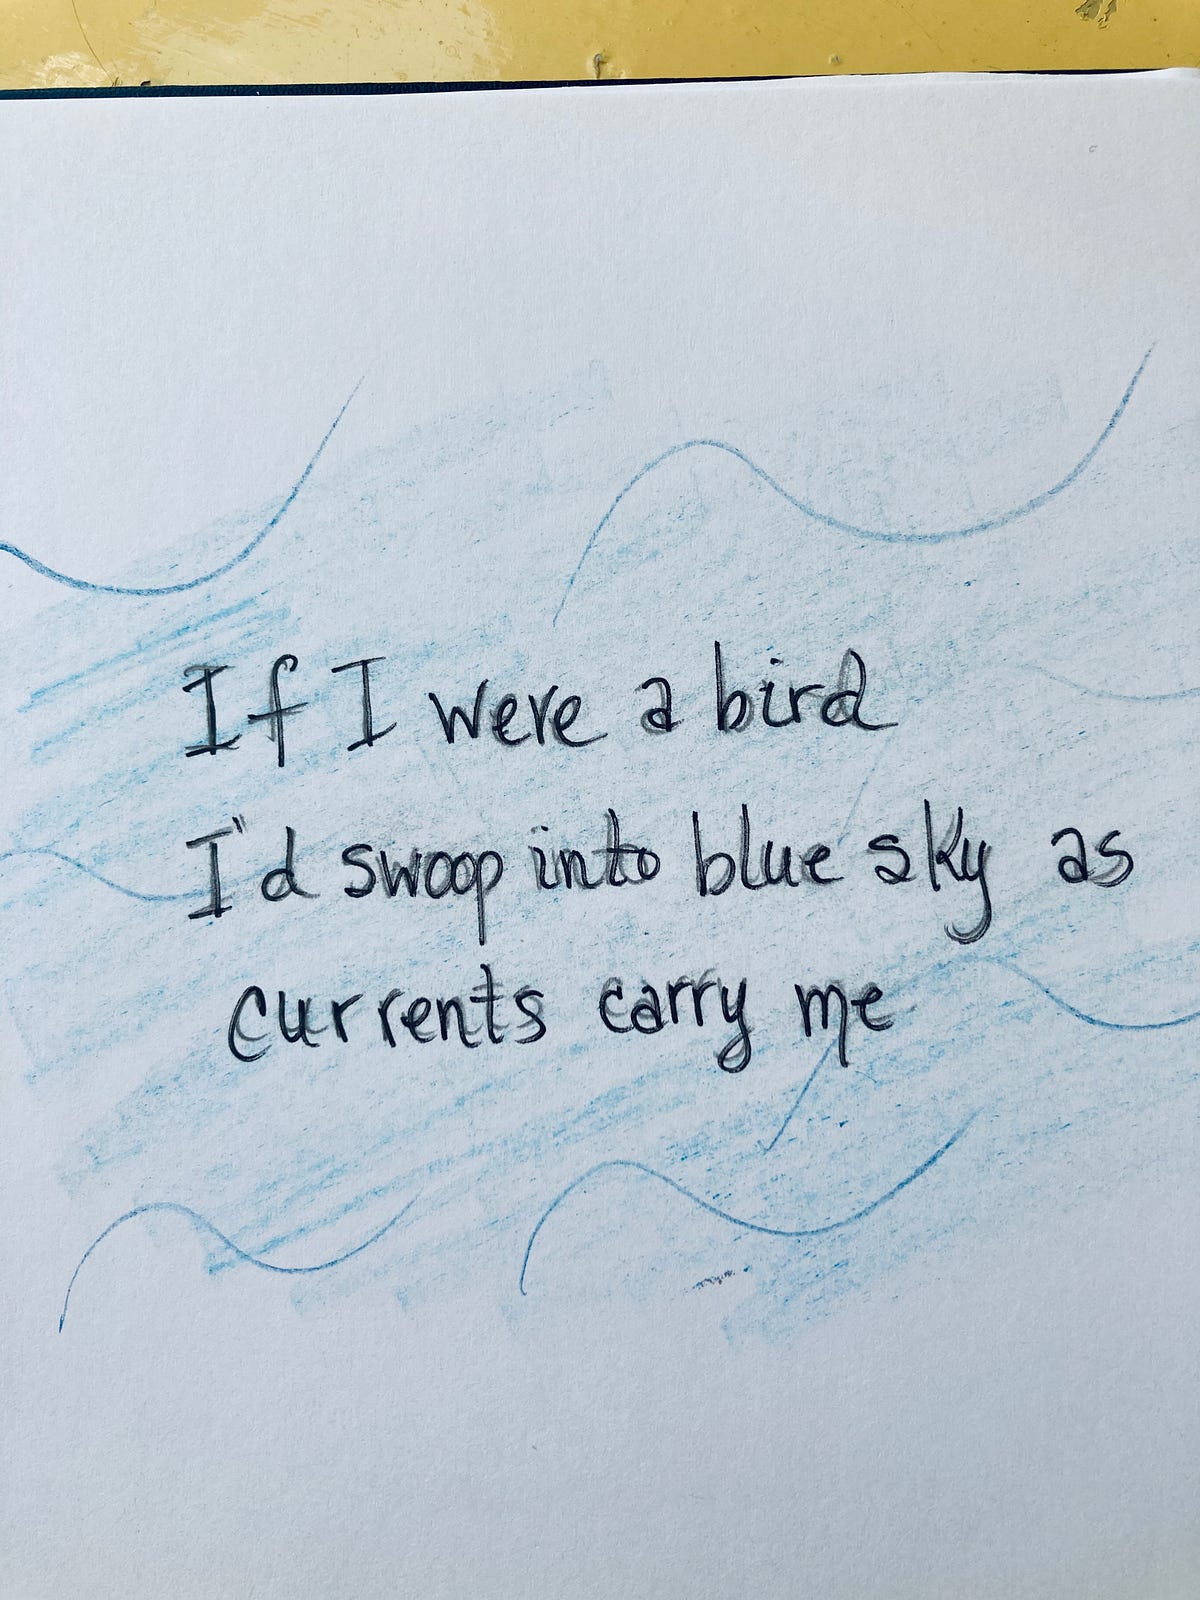 If I were a bird
I'd swoop into blue sky as
currents carry me